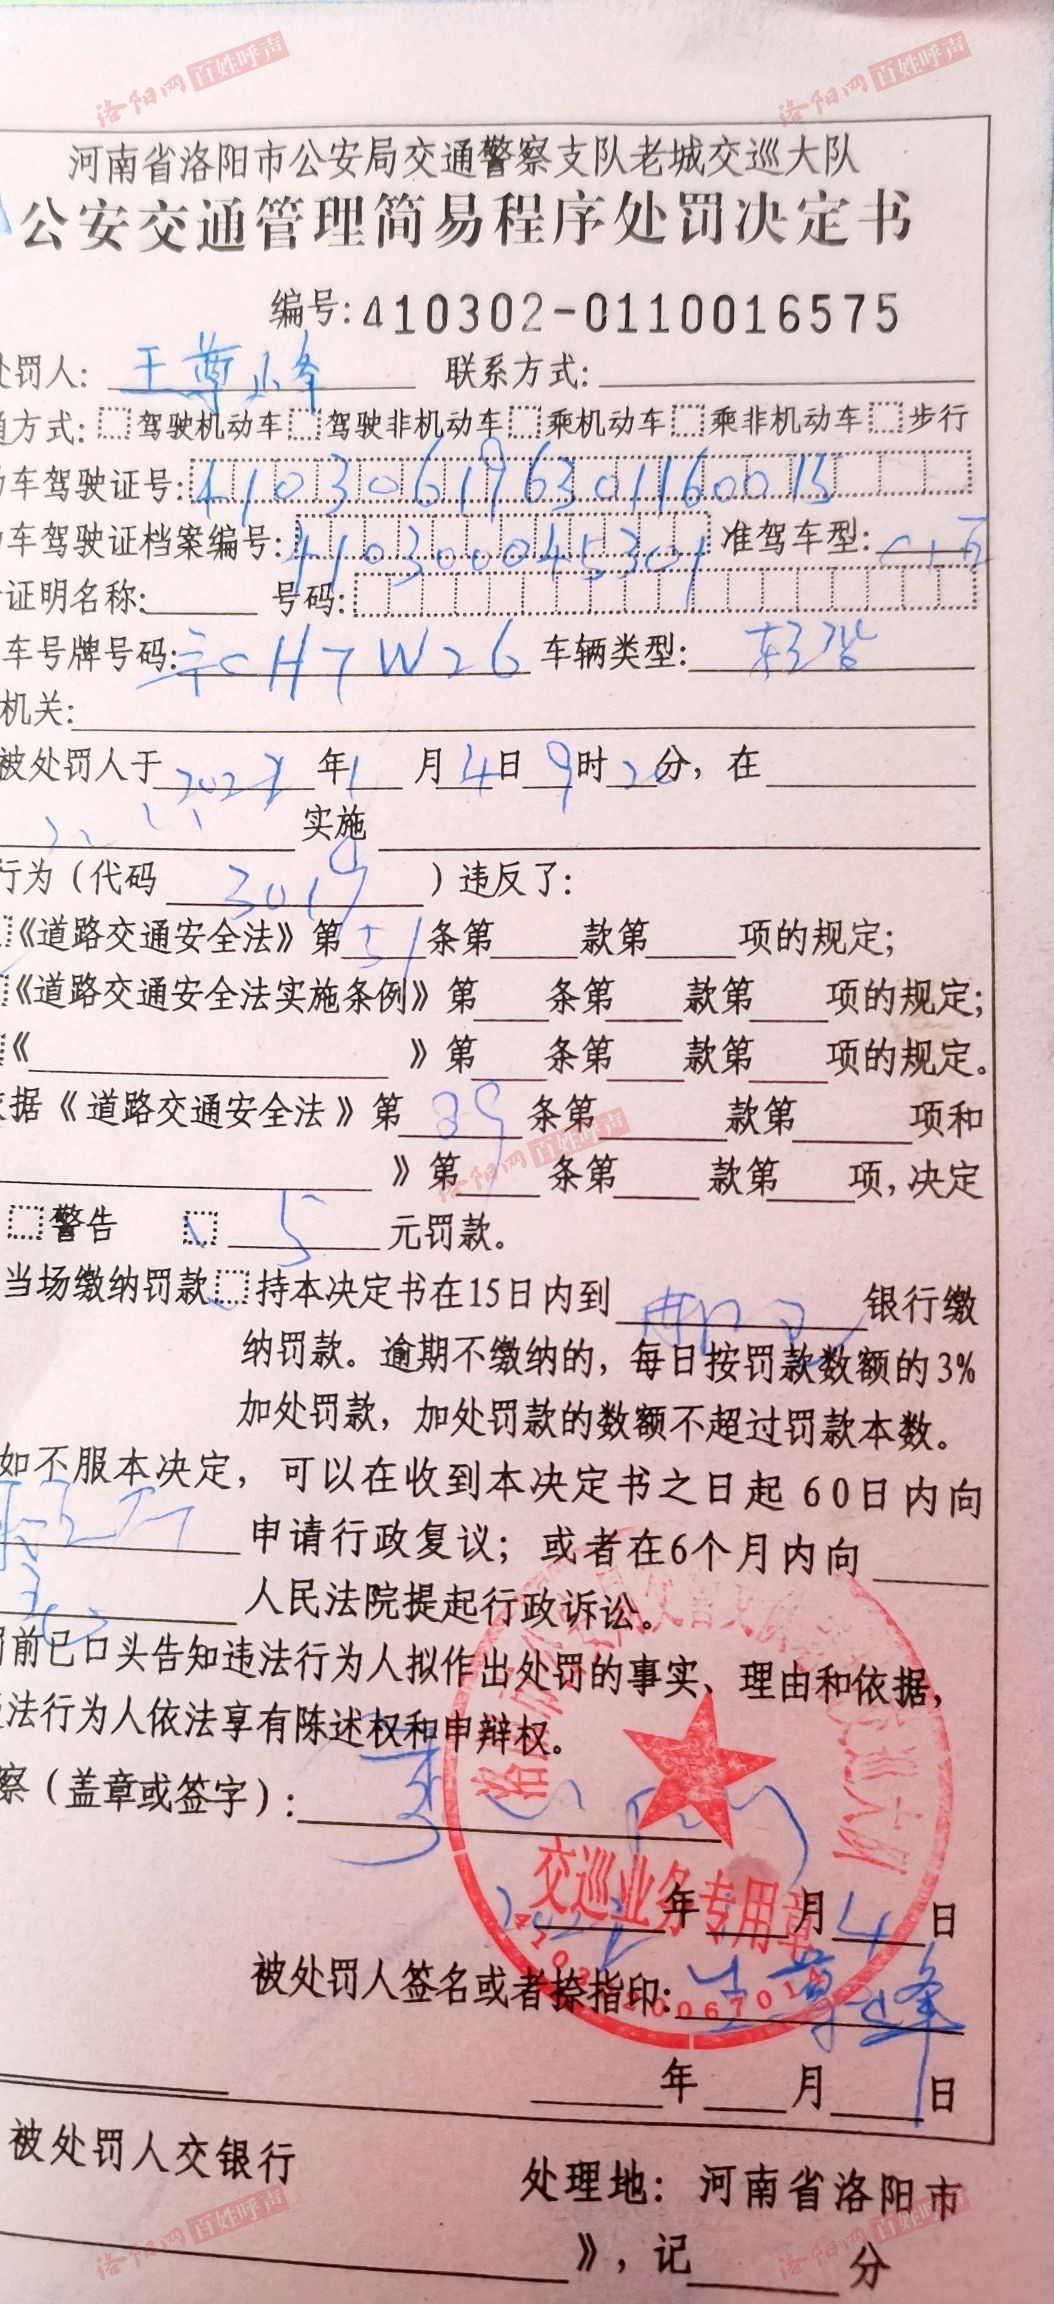 洛阳网 百姓呼声 洛阳网 百姓呼声
河南省洛阳市公安局交通警察支队老城交巡大队
公安交通管理简易程序处罚决定书
编号:410302-0110016575
处罚人: 王尊峰 联系方式:
通方式: 驾驶机动车 驾驶非机动车 乘机动车 乘非机动车 步行
动车驾驶证号: 410306196301160013
动车驾驶证档案编号: 410300045301 准驾车型:
证明名称: 号码:
车号牌号码: CH7W26 车辆类型: 轿
机关:
被处罚人于 年1月4日9时20分，在
实施
行为（代码 3019 ）违反了：
《道路交通安全法》第51条第 款第 项的规定；
《道路交通安全法实施条例》第 条第 款第 项的规定；
《 》第 条第 款第 项的规定。
依据《道路交通安全法》第89条第 款第 项和
洛阳网 百姓呼声
》第 条第 款第 项，决定
警告 5 元罚款。
当场缴纳罚款 持本决定书在15日内到 银行缴
纳罚款。逾期不缴纳的，每日按罚款数额的3%
加处罚款，加处罚款的数额不超过罚款本数。
如不服本决定，可以在收到本决定书之日起60日内向
申请行政复议；或者在6个月内向
人民法院提起行政诉讼。
罚前已口头告知违法行为人拟作出处罚的事实、理由和依据，
法行为人依法享有陈述权和申辩权。
察（盖章或签字）：
交巡业务专用章
年 月4日
被处罚人签名或者捺指印: 王尊峰
年 月 日
被处罚人交银行
处理地: 河南省洛阳市
》，记 分
洛阳网 百姓呼声 洛阳网 百姓呼声